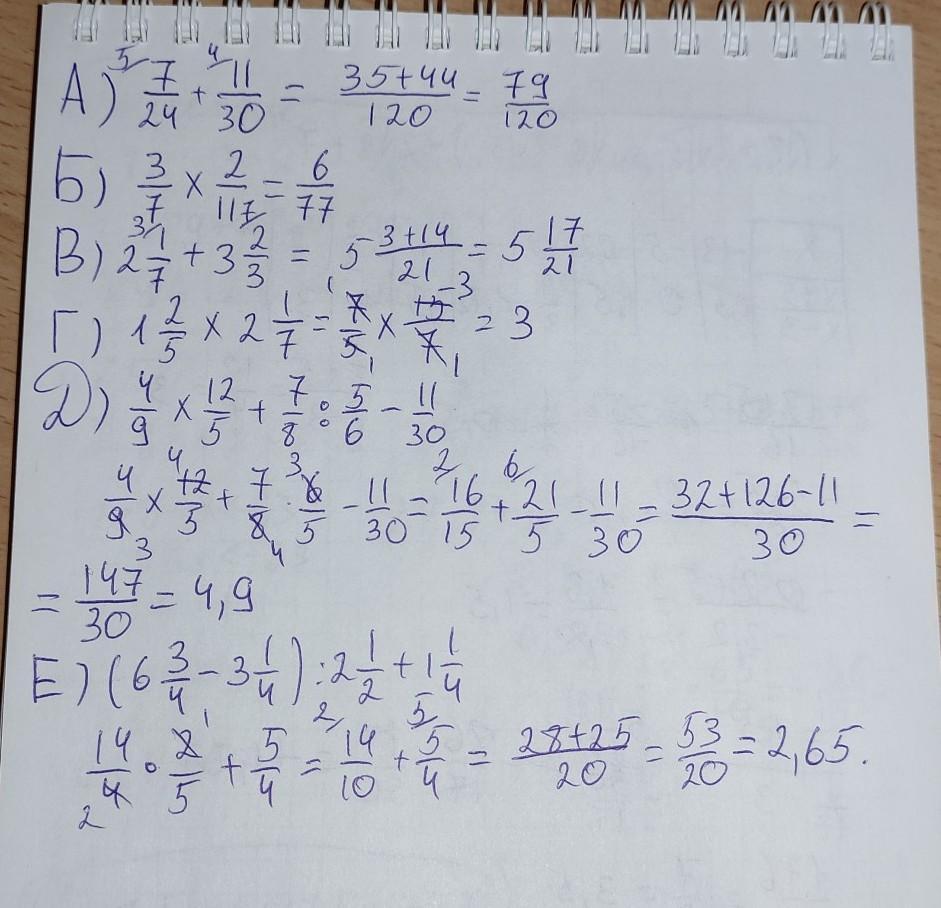 А) 5/ 7/24 + 4/ 11/30 = (35+44)/120 = 79/120
Б) 3/7 × 2/11 = 6/77
В) 2 3/ 1/7 + 3 7/ 2/3 = 5 (3+14)/21 = 5 17/21
Г) 1 2/5 × 2 1/7 = 7/5 1 1 × 15/7 3 1 = 3
Д) 4/9 × 12/5 + 7/8 : 5/6 - 11/30
4/9 3 × 12/5 4 + 7/8 4 · 6/5 3 - 11/30 = 2/ 16/15 + 6/ 21/5 - 11/30 = (32+126-11)/30 =
= 147/30 = 4,9
Е) (6 3/4 - 3 1/4) : 2 1/2 + 1 1/4
14/4 2 · 2/5 1 + 5/4 = 2/ 14/10 + 5/ 5/4 = (28+25)/20 = 53/20 = 2,65.